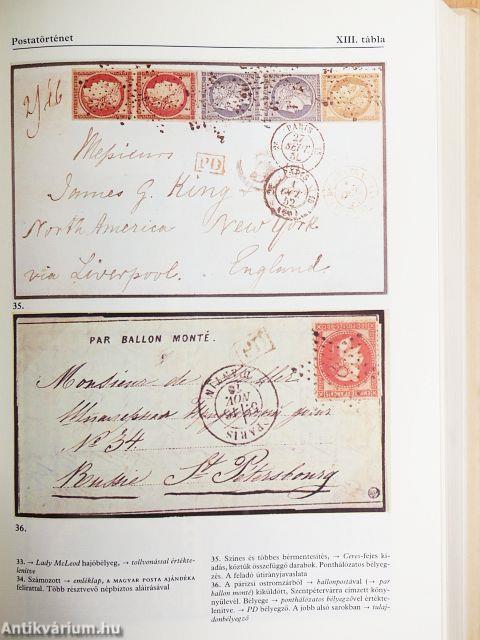 Postatörténet
XIII. tábla
2/66
PD
PARIS
27
SEPT
PARIS
1
OCT
52
(60)
Messieurs
James G. King
North America New York
via Liverpool. England.
35.
PAR BALLON MONTÉ.
PD
Monsieur de
NOV
PARIS
No 34
Russie St. Petersbourg
36.
33. → Lady McLeod hajóbélyeg, → tollvonással értékte-
lenítve
34. Számozott → emléklap, A MAGYAR POSTA AJÁNDÉKA
felirattal. Több résztvevő népbiztos aláírásával
35. Színes és többes bérmentesítés, → Ceres-fejes ki-
adás, köztük összefüggő darabok. Ponthálózatos bélyeg-
zés. A feladó útirányjavaslata
36. A párizsi ostromzárból → ballonpostával (→ par
ballon monté) kiküldött, Szentpétervárra címzett köny-
nyűlevél. Bélyege → ponthálózatos bélyegzővel értékte-
lenítve. → PD bélyegző. A jobb alsó sarokban → tulaj-
donbélyegző
Antikvárium.hu